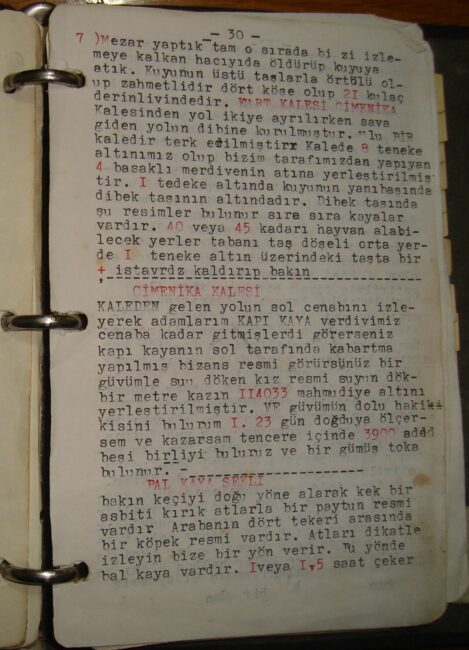 - 30 -
7 )Mezar yaptık tam o sırada bi zi izle-
meye kalkan hacıyıda öldürüp kuyuya
atık. Kuyunun üstü taşlarla örtülü ol-
up zahmetlidir dört köşe olup 2I kulaç
derinlivindedir. KURT KALESİ CİMENİKA
Kalesinden yol ikiye ayrılırken sava
giden yolun dibine kurulmuştur. "lu BİR
kaledir terk edilmiştir Kalede 8 teneke
altınımız olup bizim tarafımızdan yapıyan
4 basaklı merdivenin atına yerleştirilmiş
tir. I tedeke altında kuyunun yanıbaşında
dibek taşının altındadır. Dibek taşında
şu resimler bulunur sıra sıra kayalar
vardır. 40 veya 45 kadarı hayvan alabi-
lecek yerler tabanı taş döşeli orta yer-
de I teneke altın üzerindeki taşta bir
+ istavrdz kaldırıp bakın
CİMENİKA KALESİ
KALEDEN gelen yolun sol cenabını izle-
yerek adamlarım KAPI KAYA verdivimiz
cenaba kadar gitmişlerdi görerseniz
kapı kayanın sol tarafında kabartma
yapılmış bizans resmi görürsünüz bir
güvümle sun döken kız resmi suyun dök-
bir metre kazın II4033 mahmudiye altını
yerleştirilmiştir. VE güvümün dolu haki
kisini bulurum I. 23 gün doğduya ölçer-
sem ve kazarsam tencere içinde 3900 addd
beşi birliyi buluruz ve bir gümüş toka
bulunur. -
BAL KAYA ŞEKLİ
bakın keçiyi doğu yöne alarak kek bir
asbiti kırık atlarla bir paytun resmi
vardır Arabanın dört tekeri arasında
bir köpek resmi vardır. Atları dikatle
izleyin bize bir yön verir. Bu yönde
bal kaya vardır. Iveya I,5 saat çeker